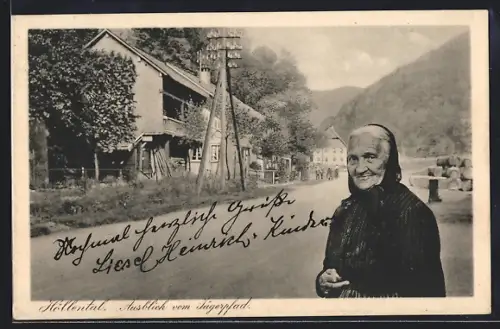 Nochmal herzlich Grüße
Liesel Heinrich + Kinder
Höllental, Ausblick vom Jägerpfad.